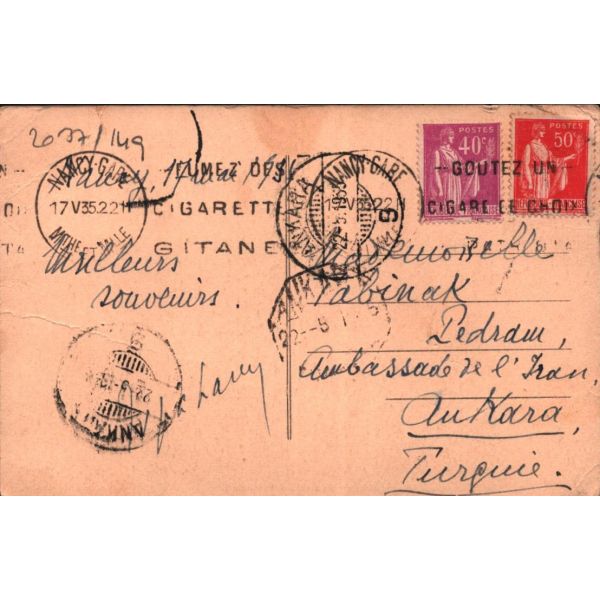 2037/149
NANCY-GARE
17 V 35. 22 H
MTHE ET MELLE
FUMEZ DES
CIGARETT
GITANE
Nancy, 17 mai
Meilleurs
souvenirs.
POSTES
40c
POSTES
50c
NANCY-GARE
GOUTEZ UN
CIGARE DE CHOIX
ANKARA
22.5.1935
9
Mademoiselle
Tabinak
Pedram,
Ambassade de l'Iran,
Ankara,
Turquie.
ANKARA
22
ANKARA
22